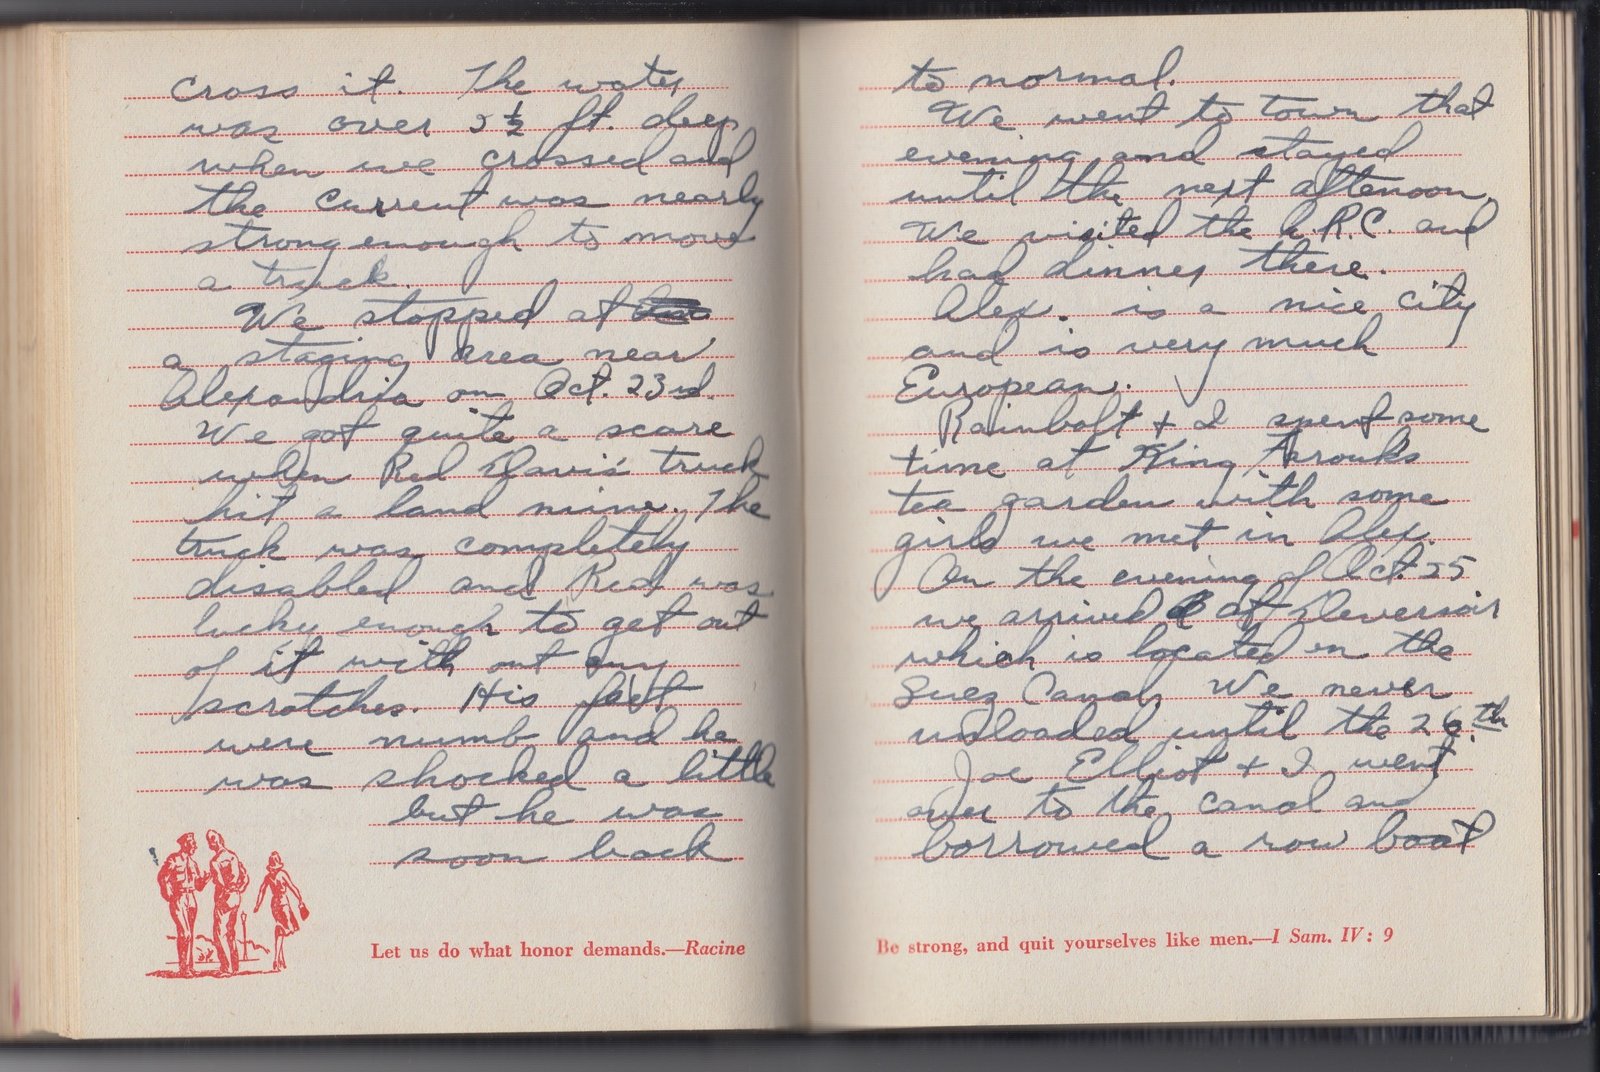 cross it. The water
was over 2 ½ ft. deep
when we crossed and
the current was nearly
strong enough to move
a truck.
We stopped at
a staging area near
Alexandria on Oct. 23rd.
We got quite a scare
when Red Davis' truck
hit a land mine. The
truck was completely
disabled and Red was
lucky enough to get out
of it with out any
scratches. His feet
were numb and he
was shocked a little
but he was
soon back
Let us do what honor demands.—Racine
to normal.
We went to town that
evening and stayed
until the next afternoon.
We visited the A.R.C. and
had dinner there.
Alex. is a nice city
and is very much
European.
Rainbolt + I spent some
time at King Farouks
tea garden with some
girls we met in Alex.
On the evening of Oct. 25
we arrived at Deversoir
which is located on the
Suez Canal. We never
unloaded until the 26th.
Joe Elliot + I went
over to the canal and
borrowed a row boat
Be strong, and quit yourselves like men.—I Sam. IV: 9